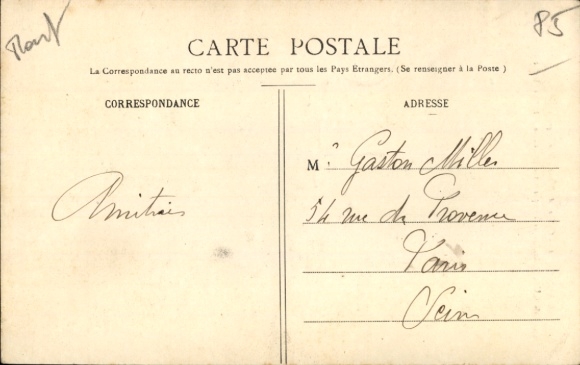 85
CARTE POSTALE
La Correspondance au recto n'est pas acceptée par tous les Pays Etrangers. (Se renseigner à la Poste)
CORRESPONDANCE
Amitiés
ADRESSE
M. Gaston Miller
54 rue de Provence
Paris
Seine